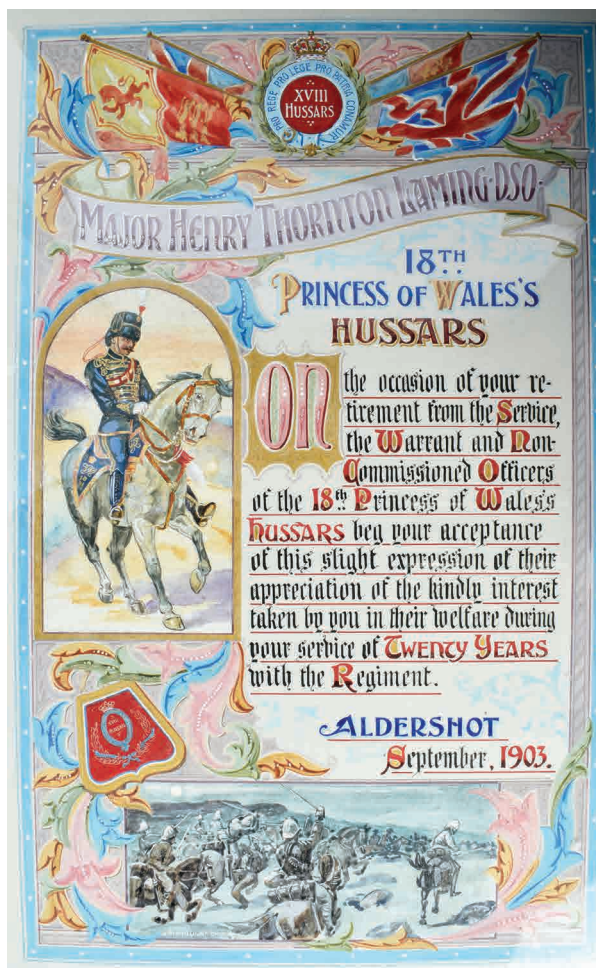 PRO REGE PRO LEGE PRO PATRIA CONAMUR
XVIII
HUSSARS
MAJOR HENRY THORNTON LAMING·DSO·
18TH
PRINCESS OF WALES'S
HUSSARS
ON the occasion of your re-
tirement from the Service,
the Warrant and Non-
Commissioned Officers
of the 18th Princess of Wales's
HUSSARS beg your acceptance
of this slight expression of their
appreciation of the kindly interest
taken by you in their welfare during
your service of TWENTY YEARS
with the Regiment.
ALDERSHOT
September, 1903.